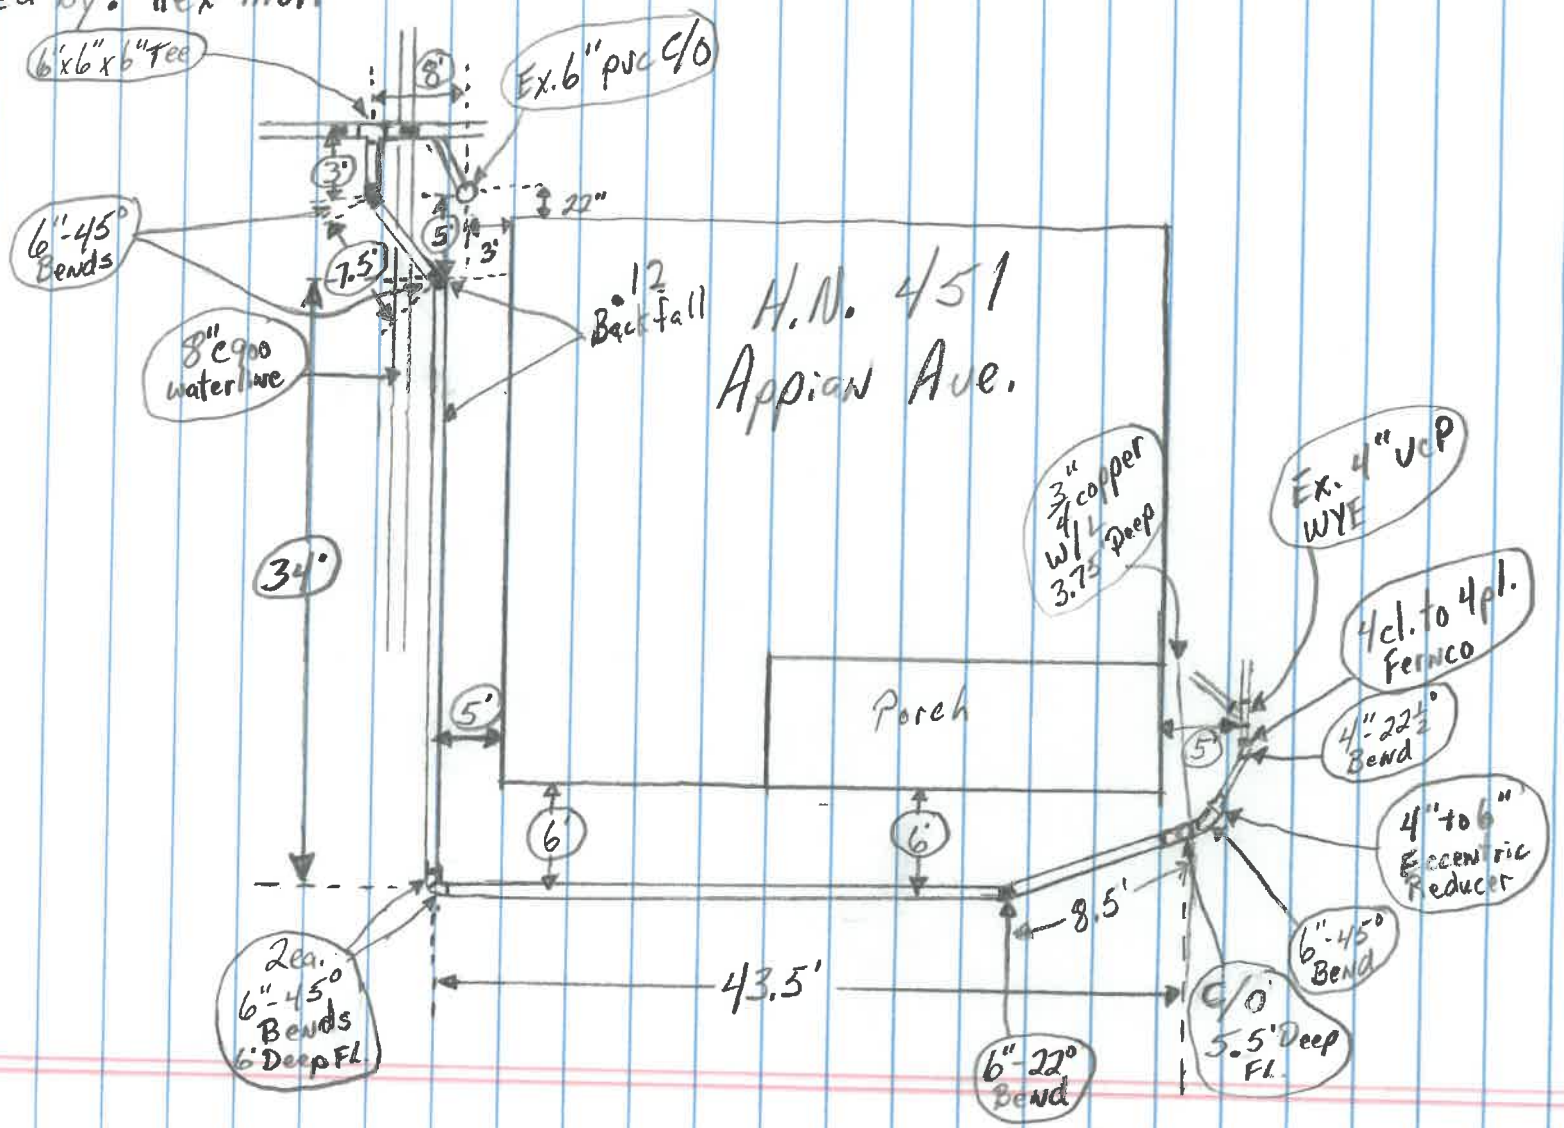 by:
6"x6"x6" Tee
8'
Ex. 6" pvc C/O
3'
22"
6"-45°
Bends
7.5'
5'
3'
.12
Backfall
H.N. 451
Appian Ave.
8" C900
waterline
34'
3"
4 copper
W/L
3.75 Deep
Ex. 4" VCP
WYE
4 cl. to 4 pl.
Fernco
4"-22½°
Bend
5'
Porch
5'
6'
6'
4" to 6"
Eccentric
Reducer
8.5'
6"-45°
Bend
2ea.
6"-45°
Bends
6' Deep FL.
43.5'
C/O
5.5' Deep
FL.
6"-22°
Bend